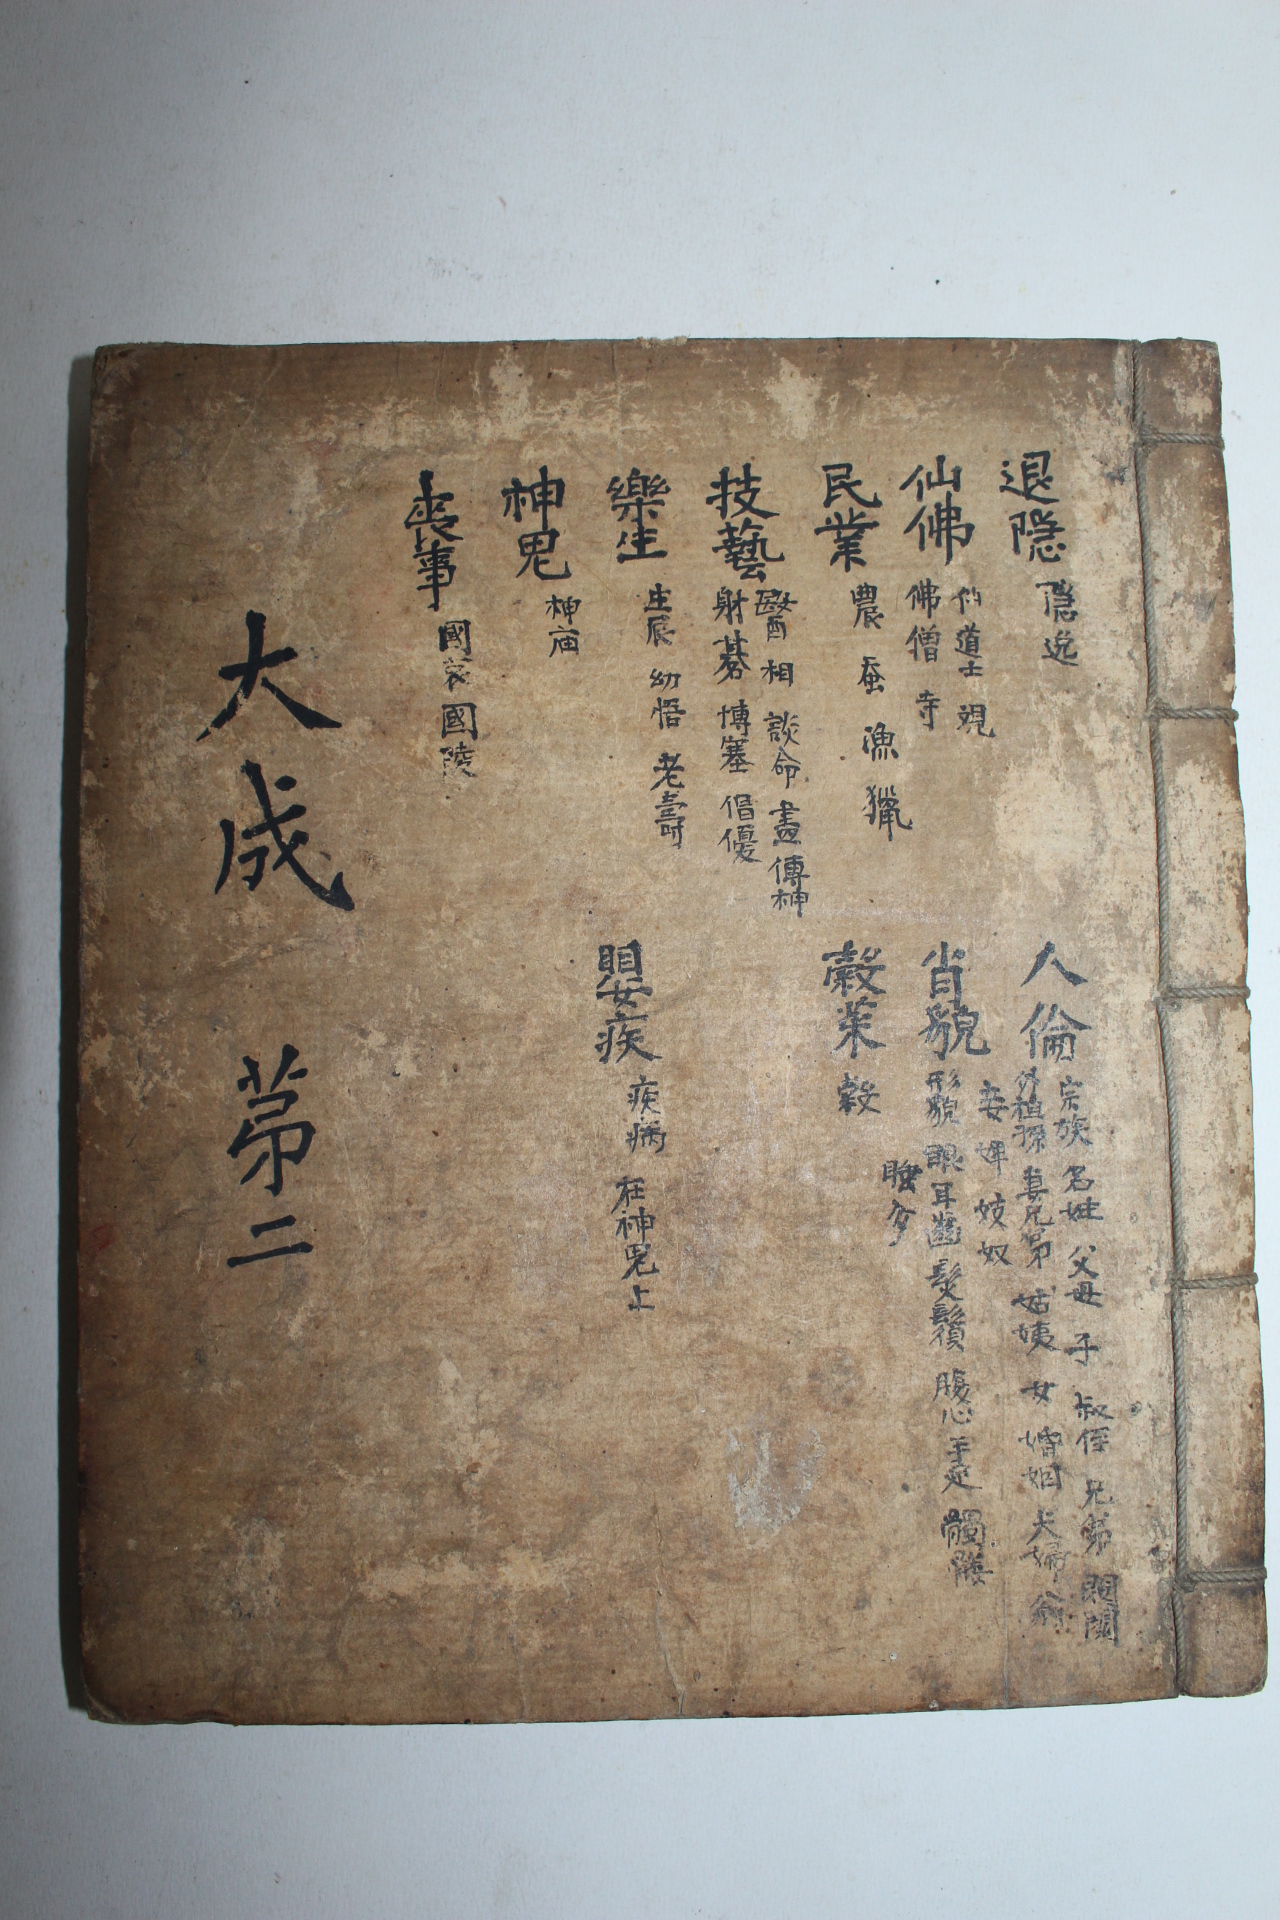 退隱 隱逸
仙佛 仙 道士 覡
佛 僧 寺
民業 農 蚕 漁 獵
技藝 醫 相 談命 畫 傳神
射 碁 博塞 倡優
樂生 生辰 幼悟 老壽
神鬼 神 庙
喪事 國哀 國陵
人倫 宗族 名姓 父母 子 叔侄 兄弟 閨閤
外祖孫 妻兄弟 姑姨 女 婚姻 夫婦 翁
妾 婢 妓 奴
肖貌 形貌 眼 耳 齒 髮 鬚 腹 心 羞 髑髏
睡 夢
穀菜 穀
嬰疾 疾病 在神鬼上
大成 苐二